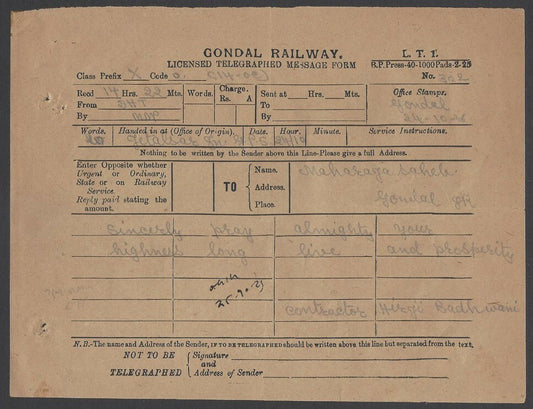 GONDAL RAILWAY.
LICENSED TELEGRAPHED MESSAGE FORM
L. T. 1.
G.P.Press-40-1000Pads-2-25
Class Prefix X Code o. (14-05)
No. 302
Recd 14 Hrs. 22 Mts. Words. Charge. Rs. A Sent at Hrs. Mts. Office Stamps.
From To Gondal
By By 24-10-25
Words. Handed in at (Office of Or-gin). Date. Hour. Minute. Service Instructions.
Jetalsar Jn. 24/10
Nothing to be written by the Sender above this Line-Please give a full Address.
Enter Opposite whether
Urgent or Ordinary,
State or on Railway
Service.
Reply paid stating the
amount.
TO
Name. Maharaja Saheb
Address.
Place. Gondal
sincerly pray almighty your
highness long live and prosperity
contractor Hirji Badhwani
N.B.-The name and Address of the Sender, IF TO BE TELEGRAPHED should be written above this line but separated from the text.
NOT TO BE
TELEGRAPHED
Signature
and
Address of Sender